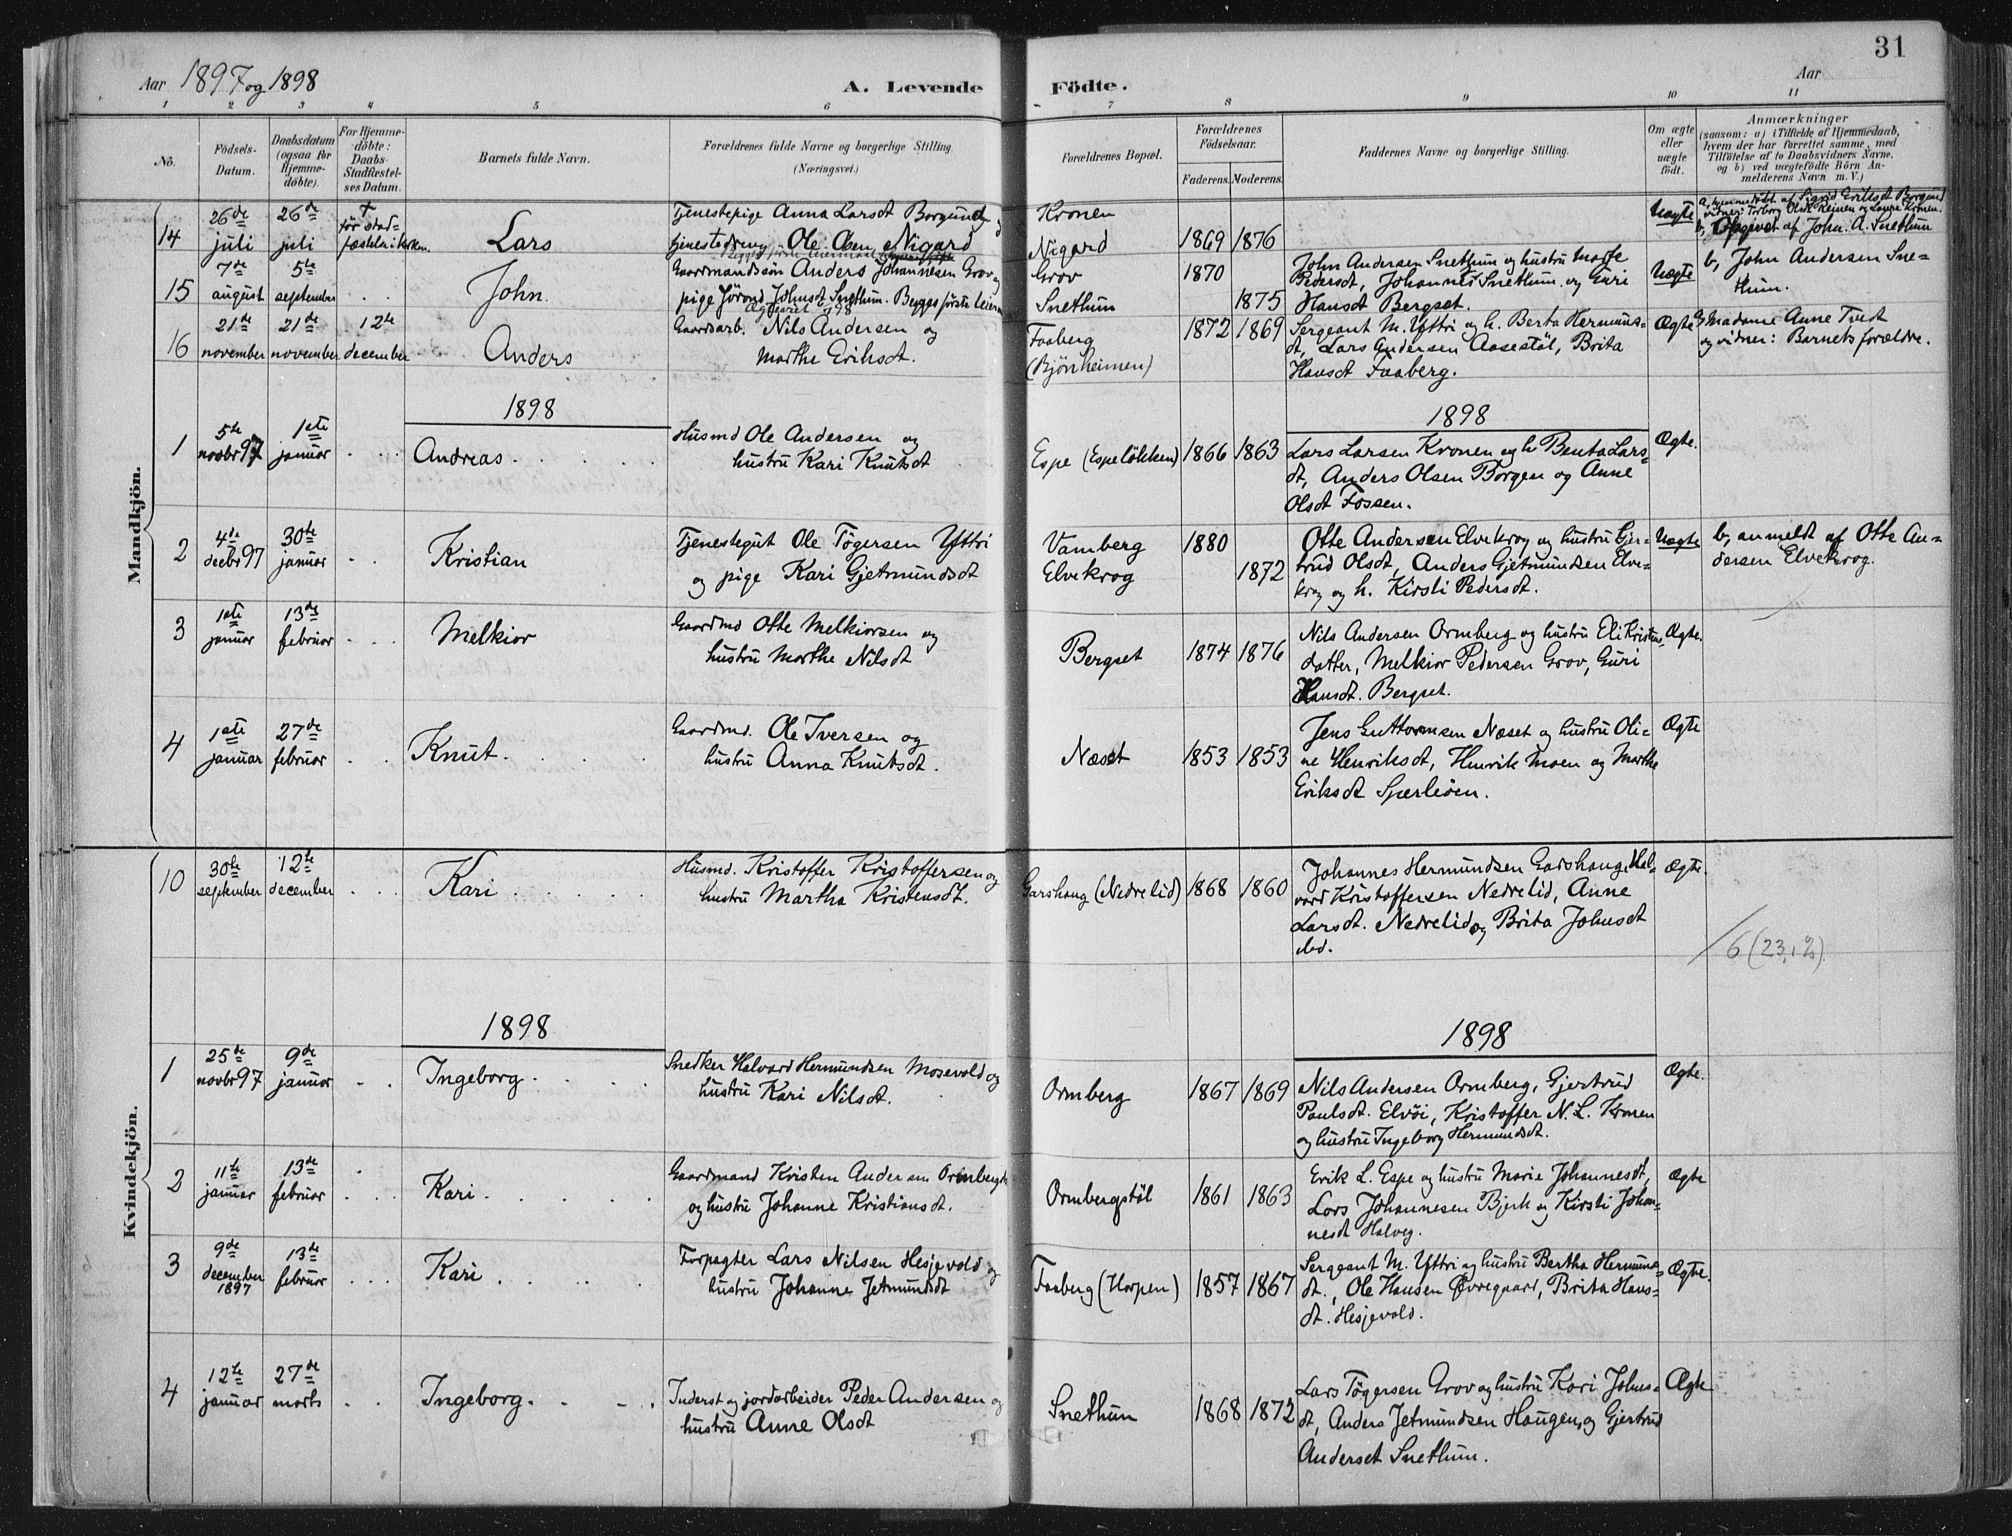 31
Aar 1897 og 1898
A. Levende Födte.
Aar
1 2 3 4 5 6 7 8 9 10 11
No.
Födsels-Datum.
Daabsdatum (ogsaa for Hjemme-döbte).
For Hjemme-döbte: Daabs-Stadfæstel-ses Datum.
Barnets fulde Navn.
Forældrenes fulde Navne og borgerlige Stilling.
(Næringsvei.)
Forældrenes Bopæl.
Forældrenes Födselsaar.
Faderens. Moderens.
Faddernes Navne og borgerlige Stilling.
Om ægte eller uægte födt.
Anmærkninger
(saasom: a) i Tilfælde af Hjemmedaab,
hvem der har forrettet samme, med
Tilföielse af to Daabsvidners Navne,
og b) ved uægtefödte Börn An-
melderens Navn m. V.)
Mandkjön.
14 26de juli 26de juli + för stad-fæstelse i kirken. Lars
Tjenestepige Anna Larsdt Borgund og
tjenestedreng Ole Olsen Nigard
Kronen
Nigard
1869 1876
Uægte
a, hjemmedöbt af Sigrid Eriksdt Borgund
vidner: Torborg Olsdt Reinen og Laura Kronen.
b, Opgivet af John. A. Snethun
15 7de august 5te september . . John.
Gaardmandssön Anders Johannesen Grov og
pige Jörond Johnsdt Snethum. Begges förste leierm
Grov
Snethum
1870
1875
John Andersen Snethum og hustru Marte
Pedersdt, Johannes Snethum og Guri
Hansdt Bergset.
Uægte
b, John Andersen Sne-
thum.
16 21de november 21de november 12te december Anders
Gaardarb. Nils Andersen og
Marthe Eriksdt.
Faaberg
(Bjönheimen)
1872 1869
Sergeant M. Yttri og h. Berta Hermuns-
dt, Lars Andersen Aasestöl, Brita
Hansdt Faaberg.
Ægte
a, Madame Anne Tvedt
og vidner: Barnets forældre.
1898
1898
1 5te novbr 97 1ste januar . . Andreas
Husmd Ole Andersen og
hustru Kari Knutsdt
Espe (Espelökken)
1866 1863
Lars Larsen Kronen og h. Benta Lars-
dt, Anders Olsen Borgen og Anne
Olsdt Fossen.
Ægte.
2 4de decbr 97 30te januar . . Kristian
Tjenestegut Ole Tögersen Yttri
og pige Kari Gjetmundsdt
Vamberg
Elvekrog
1880
1872
Otte Andersen Elvekrog og hustru Gjer-
trud Olsdt, Anders Gjetmundsen Elve-
krog og h. Kirsti Pedersdt.
Uægte
b, anmeldt af Otte An-
dersen Elvekrog.
3 1ste januar 13de februar . . Melkior
Gaardmd Otte Melkiorsen og
hustru Marthe Nilsdt
Bergset
1874 1876
Nils Andersen Ormberg og hustru Eli Kristens
datter, Melkior Pedersen Grov, Guri
Hansdt. Bergset.
Ægte.
4 1ste januar 27de februar . . Knut.
Gaardmd. Ole Iversen og
hustru Anna Knutsdt.
Næset
1853 1853
Jens Guttormsen Næset og hustru Oli-
ne Henriksdt, Henrik Moen og Marthe
Eriksdt Sperleöen.
Ægte
Kvindekjön.
10 30te september 12te december . . Kari
Husmd. Kristoffer Kristoffersen og
hustru Martha Kristensdt.
Garshaug (Nedrelid)
1868 1860
Johannes Hermundsen Garshaug, Hal-
vard Kristoffersen Nedrelid, Anne
Larsdt. Nedrelid og Brita Johnsdt
ibd.
Ægte.
1898
1898
1 25de novbr 97 9de januar . . Ingeborg
Snedker Halvard Hermundsen Mosevold og
hustru Kari Nilsdt.
Ormberg
1867 1869
Nils Andersen Ormberg, Gjertrud
Paulsdt. Elvöi, Kristoffer N. L. Kronen
og hustru Ingeborg Hermundsdt.
Ægte.
2 11te januar 13de februar . . Kari
Gaardmand Kristen Andersen Ormbergst
og hustru Johanne Kristiansdt.
Ormbergstöl
1861 1863
Erik L. Espe og hustru Marie Johannesdt,
Lars Johannesen Bjerk og Kirsti Johan-
nesdt Halveg.
Ægte
3 9de december 1897 13de februar . . Kari
Forpagter Lars Nilsen Hesjevold og
hustru Johanne Jetmundsdt
Faaberg (Horpen)
1857 1867
Sergeant M. Yttri og hustru Bertha Hermuns-
dt., Ole Hansen Övregaard, Brita Hans-
dt. Hesjevold.
Ægte.
4 12te januar 27de marts . . Ingeborg.
Inderst og jordarbeider Peder Andersen og
hustru Anne Olsdt
Snethun
1868 1872
Lars Tögersen Grov og hustru Kari Johns-
dt, Anders Jetmundsen Haugen, og Gjertrud
Andersdt Snethum.
Ægte